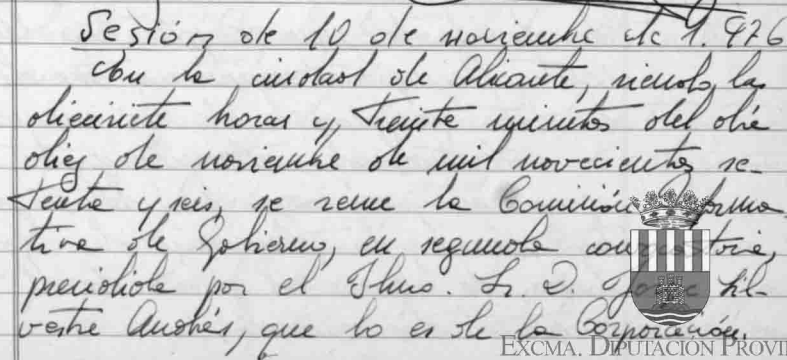 Sesión de 10 de noviembre de 1.976
En la ciudad de Alicante, siendo las
diecisiete horas y treinta minutos del día
diez de noviembre de mil novecientos se-
tenta y seis, se reune la Comisión Informa-
tiva de Gobierno, en segunda convocatoria,
presidida por el Ilmo. Sr. D. Jorge Sil-
vestre Andrés, que lo es de la Corporación.
EXCMA. DIPUTACIÓN PROVI